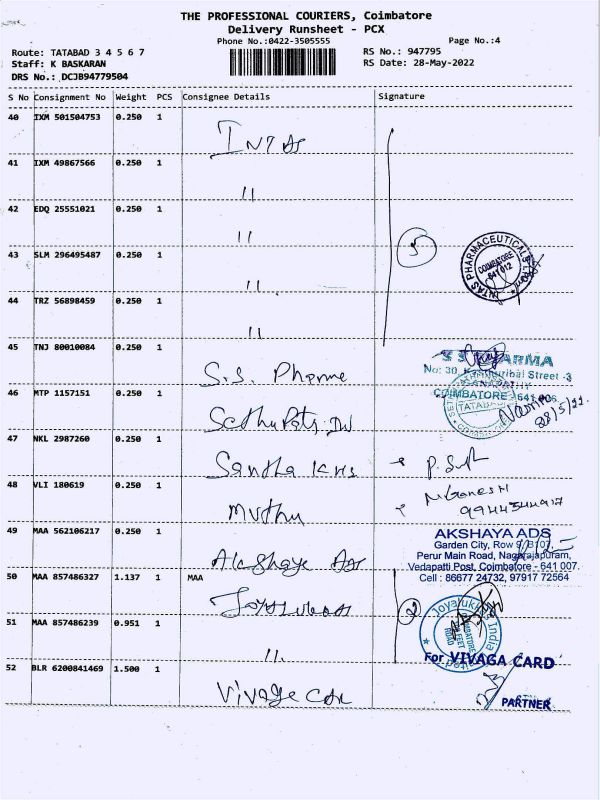 THE PROFESSIONAL COURIERS, Coimbatore
Delivery Runsheet - PCX
Phone No.:0422-3505555
Page No.:4
Route: TATABAD 3 4 5 6 7
RS No.: 947795
Staff: K BASKARAN
RS Date: 28-May-2022
DRS No.: DCJB94779504
S No Consignment No Weight PCS Consignee Details Signature
40 IXM 501504753 0.250 1 INTAS
41 IXM 49867566 0.250 1 11
42 EDQ 25551021 0.250 1 11
5
43 SLM 296495487 0.250 1 11
INTAS PHARMACEUTICALS
COIMBATORE
641 012
44 TRZ 56898459 0.250 1 11
45 TNJ 80010084 0.250 1 S.S. Pharme
No: 30,
Street -3
46 MTP 1157151 0.250 1
COIMBATORE - 641 006.
TATABAD
28/5/22
47 NKL 2987260 0.250 1 Santha
48 VLI 180619 0.250 1 Muthu
N. Ganesh
49 MAA 562106217 0.250 1 Akshaya
AKSHAYA ADS
Garden City, Row
Perur Main Road, Nagarajapuram,
Vedapatti Post, Coimbatore - 641 007.
Cell : 86677 24732, 97917 72564
50 MAA 857486327 1.137 1 MAA
2
India
51 MAA 857486239 0.951 1 11.
For VIVAGA CARD
52 BLR 6200841469 1.500 1 Vivaga
PARTNER